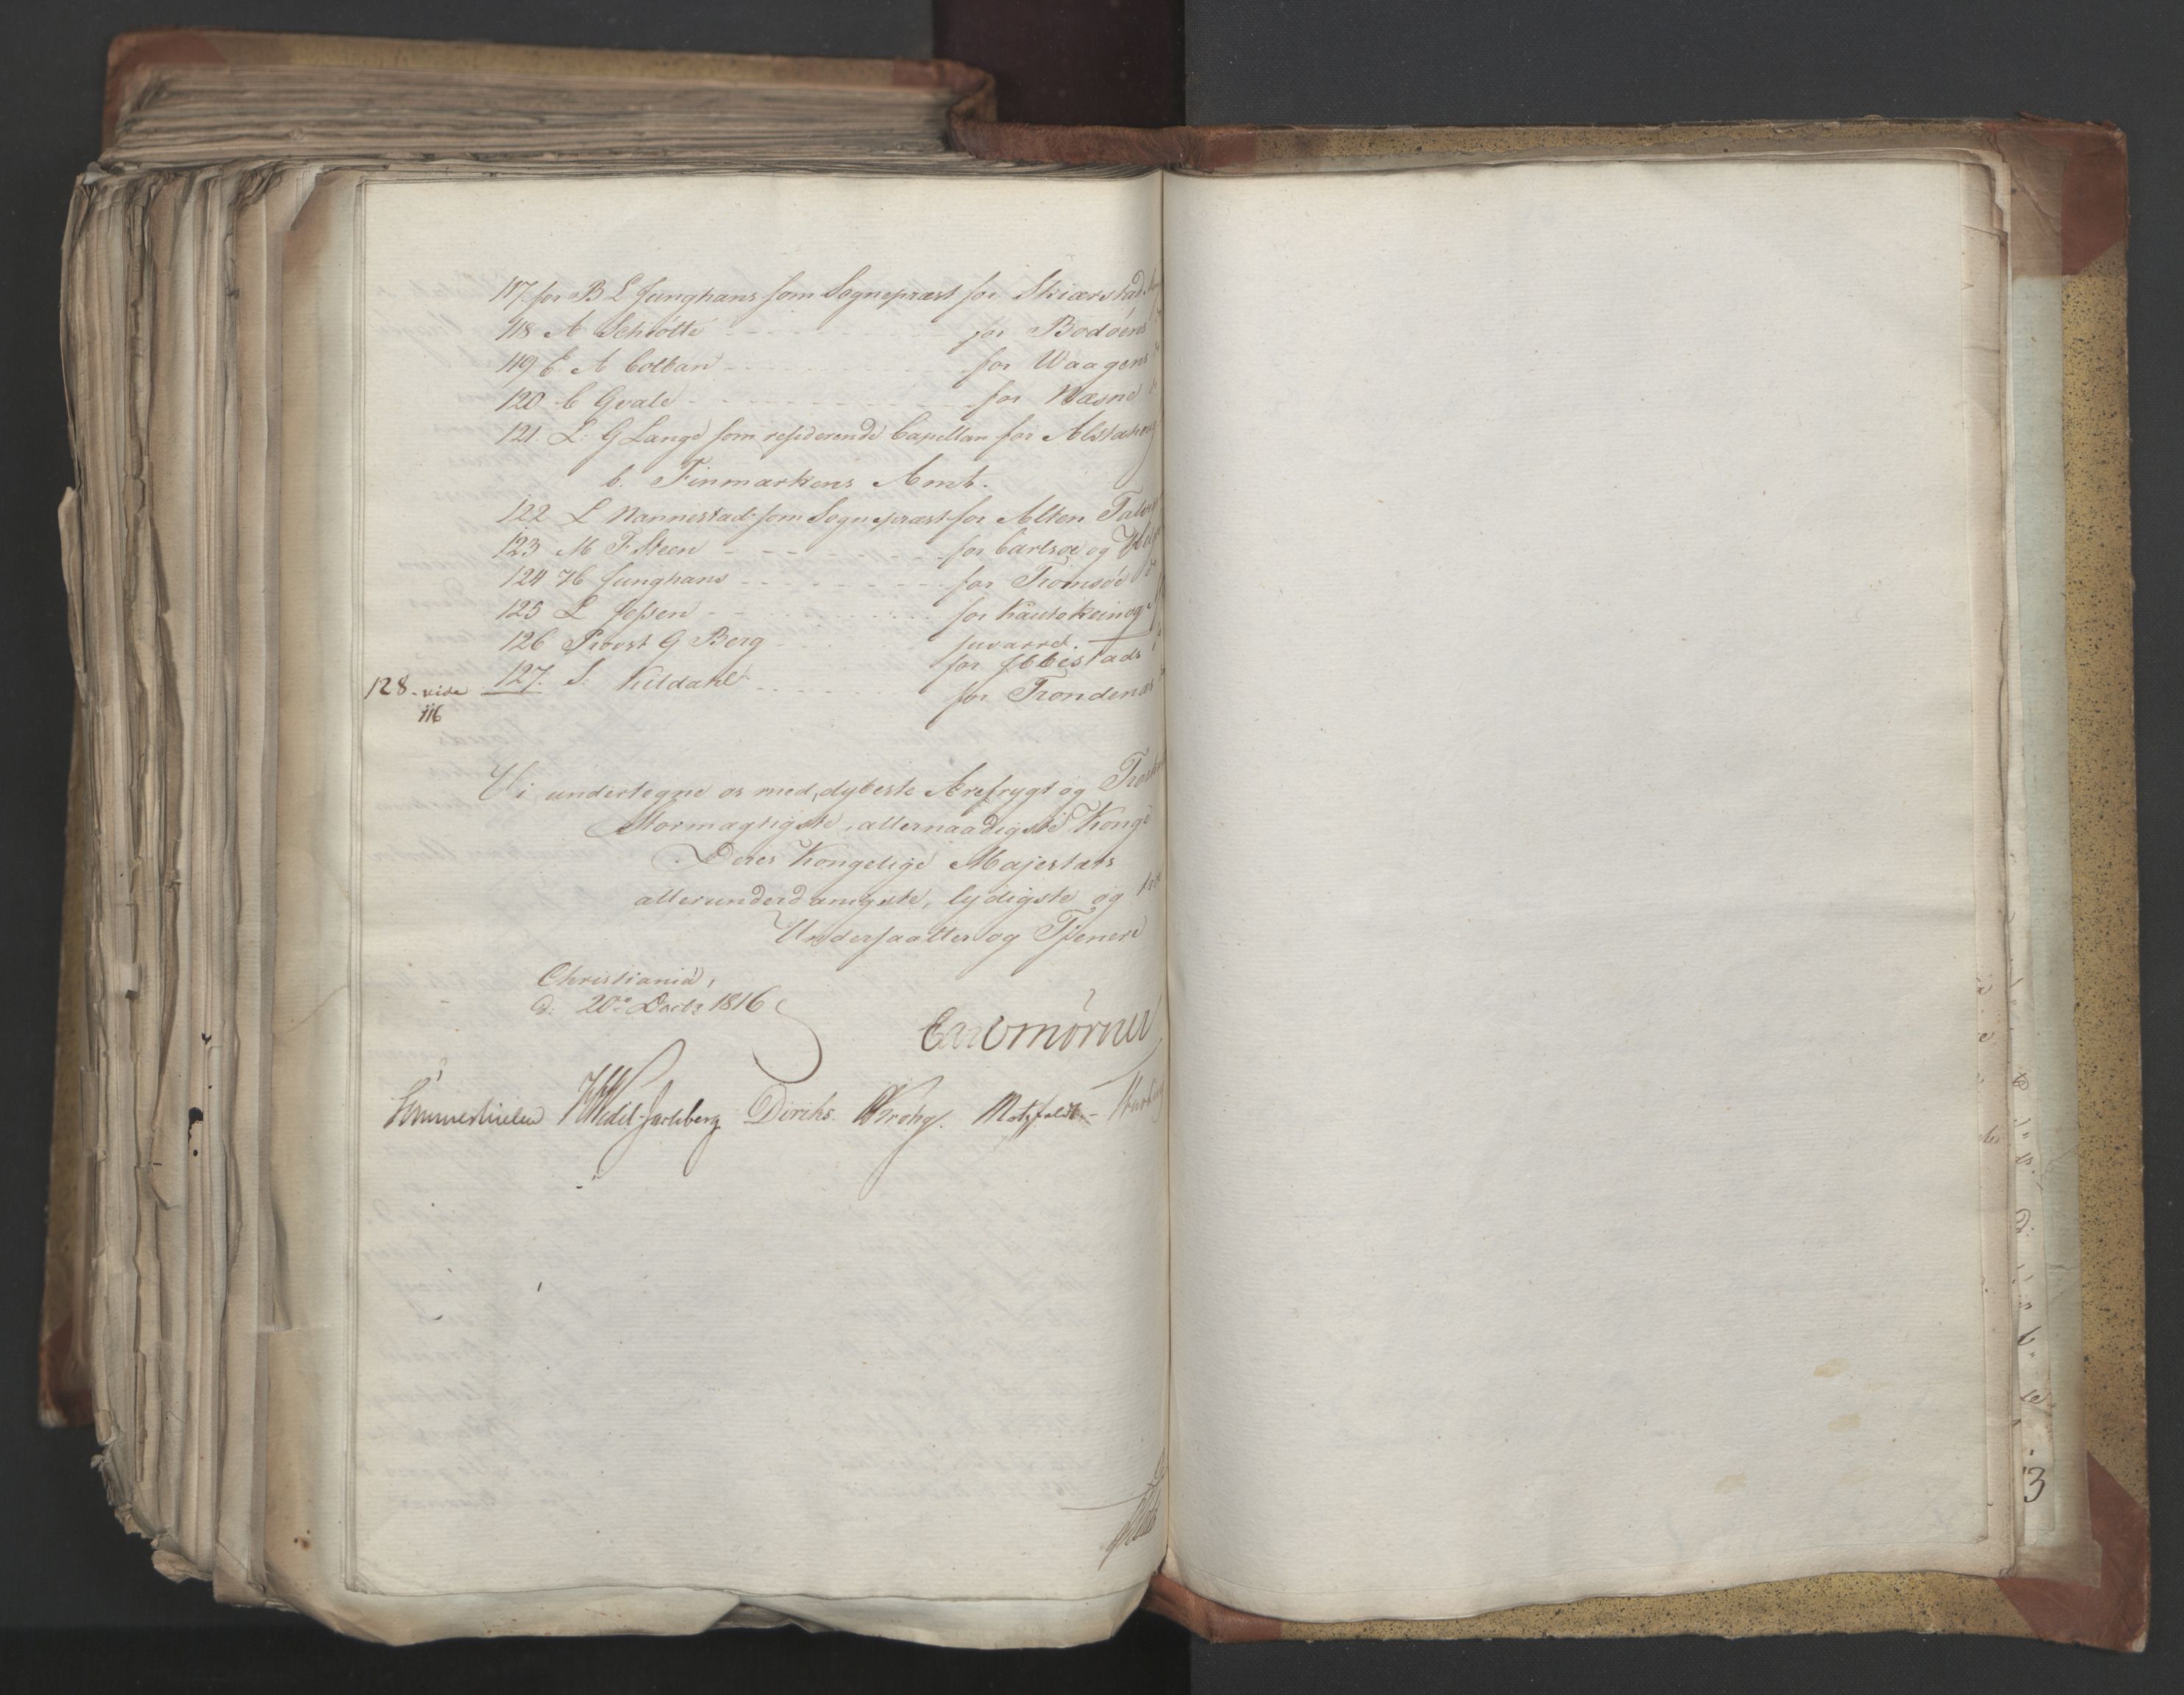 117 for B L Junghans som Sognepræst for Skiærstad
118 A Schiötte - - - for Bodöens
119 E A Colban - - - for Waagens
120 C Qvale - - - for Næsne
121. L: G Lange som residerende Capellan for Alstahoug
b. Finmarkens Amt.
122 L Nannestad som Sognepræst for Alten Talvig
123 M F Steen - - - for Carlsöe og
124 H Junghans - - - for Tromsöe
125 L Jessen - - - for Kautokeino og
126 Provst G Berg - - - juvarre.
for Ibbestads
127. S. Kildahl - - - for Trondenæs
128. vide
116
Vi undertegne os med, dybeste Ærefrygt og
Stormægtigste, allernaadigste Konge
Deres Kongelige Majestæts
allerunderdanigste, lydigste og
Undersaatter og Tjenere
Christiania,
d: 20de Decbr 1816
Mörner
Sommerhielm HWedel-Jarlsberg Diriks. Krohg. Motzfeldt -
3